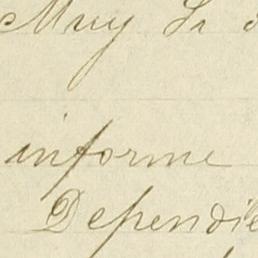 Muy Sr
informe
Dependie